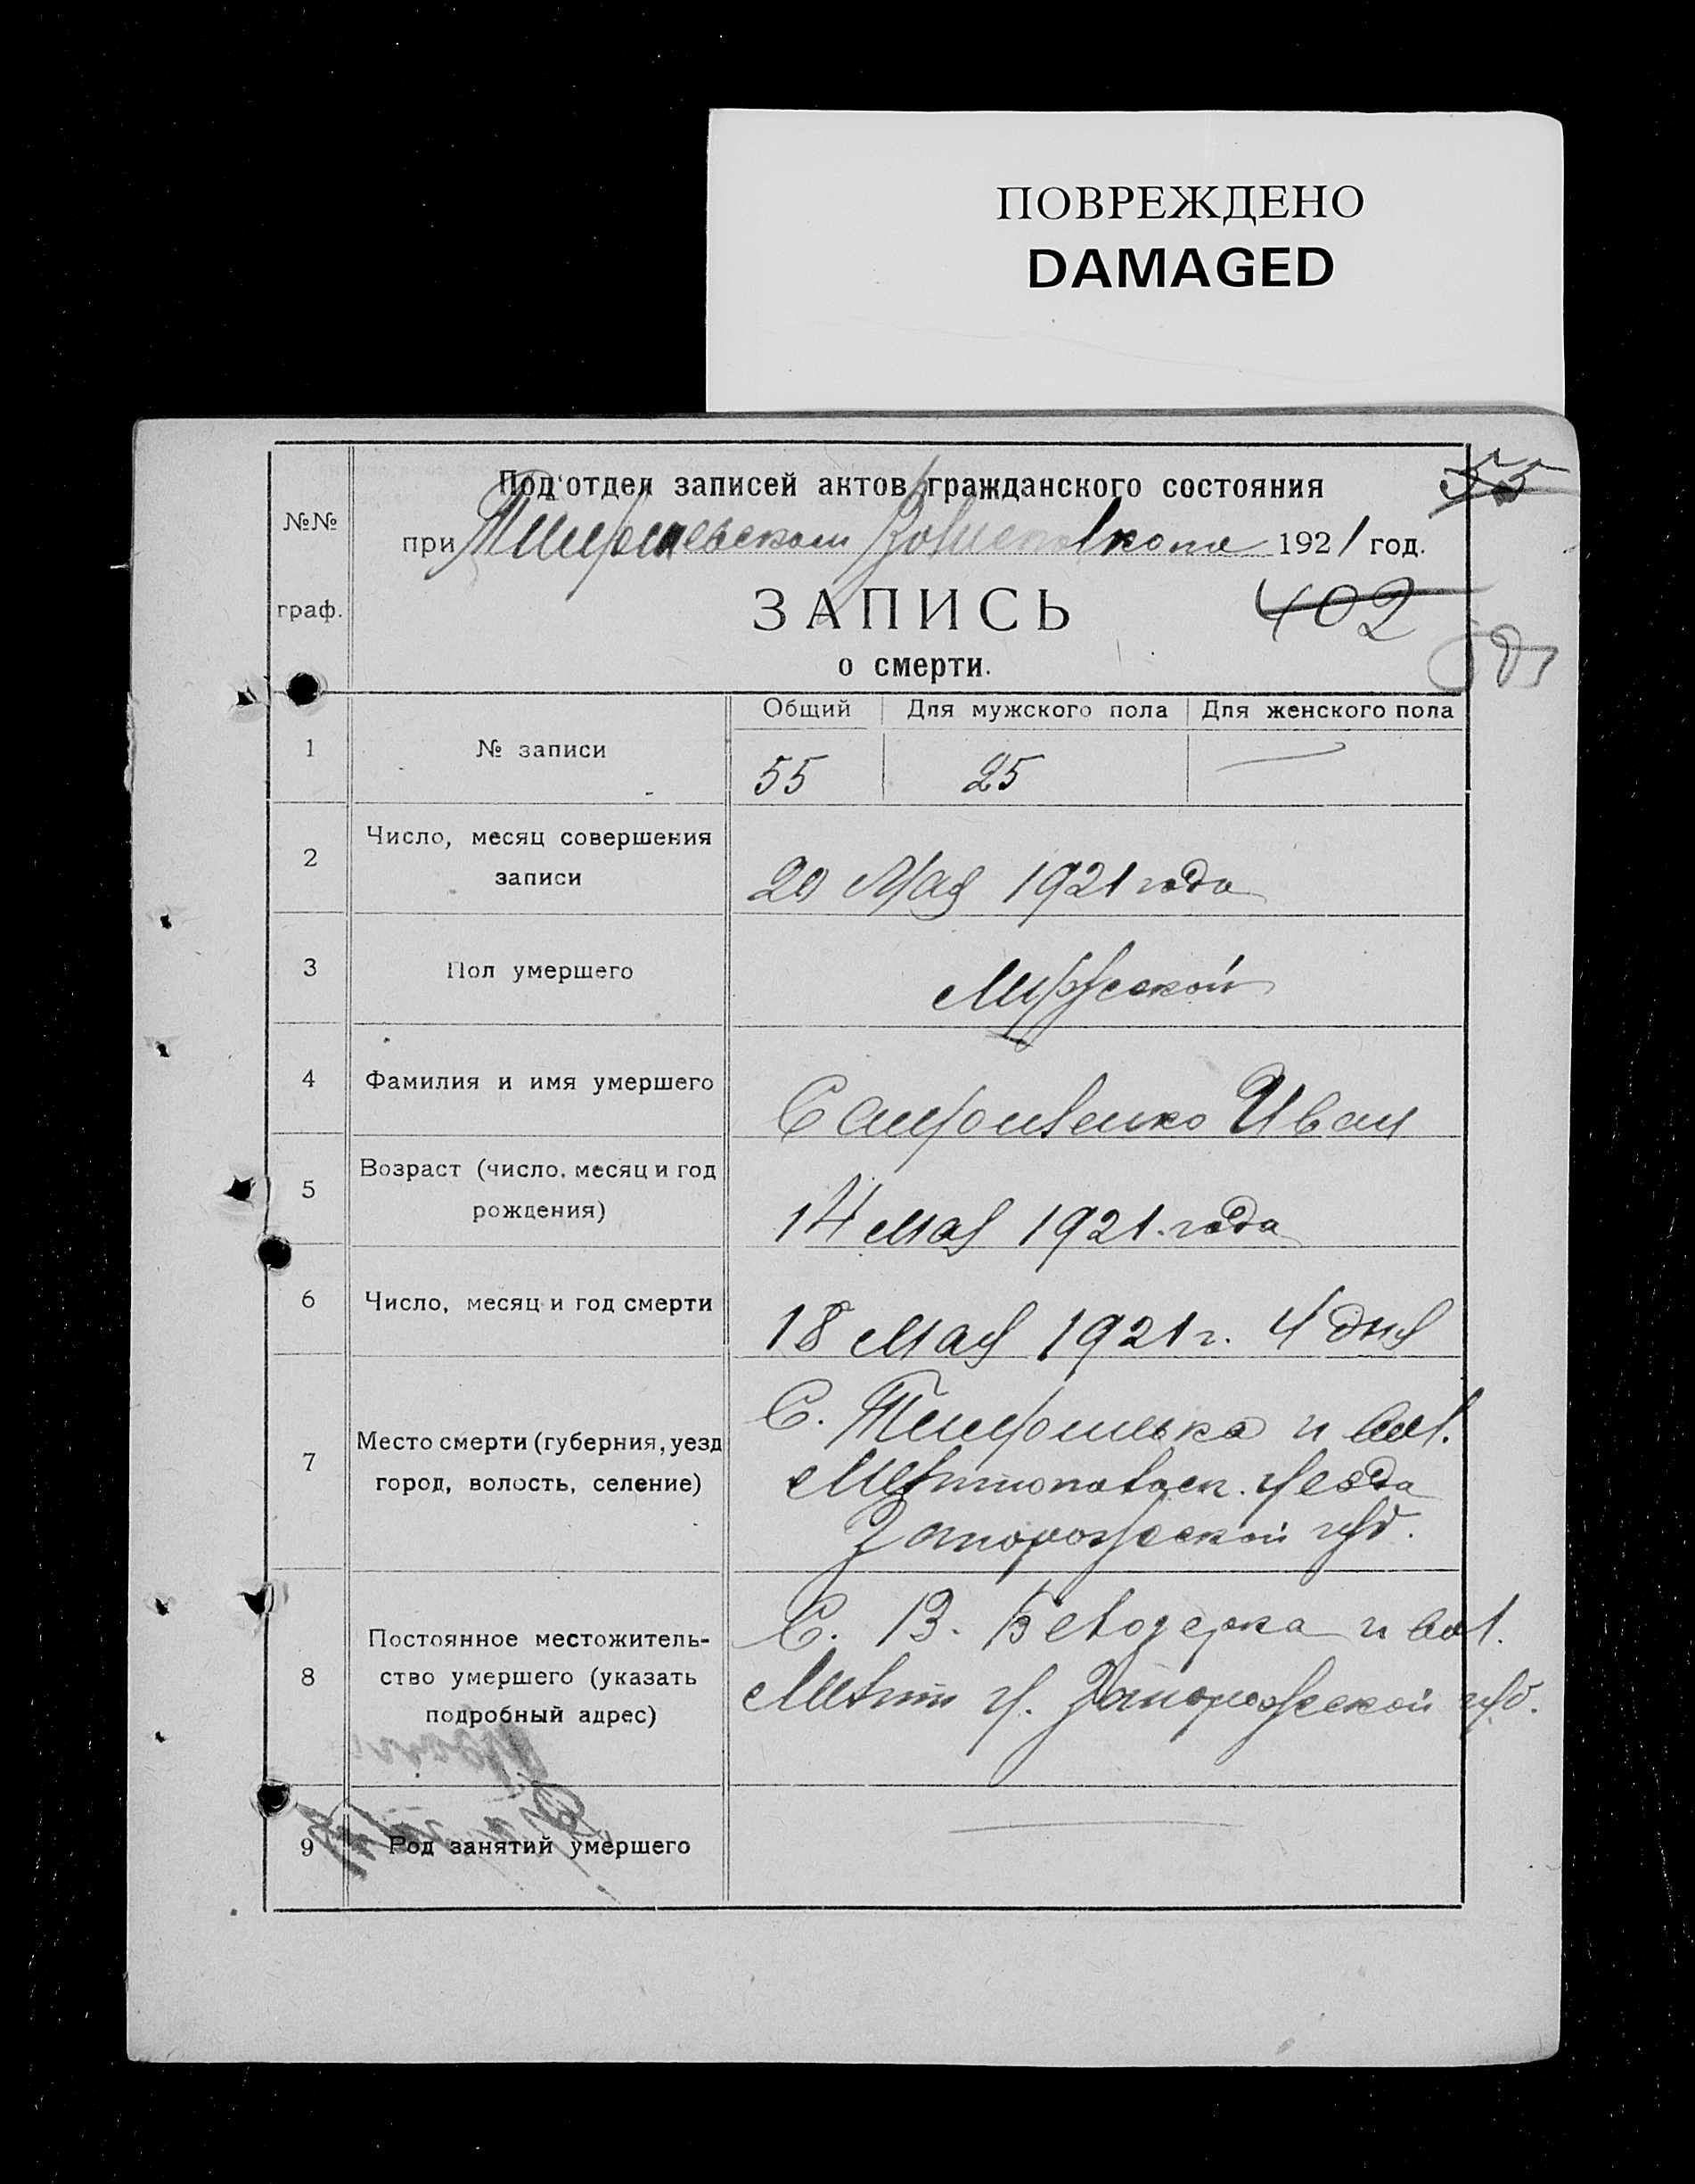 ПОВРЕЖДЕНО
DAMAGED
55
№№ граф.
Под'отдел записей актов гражданского состояния
при Тимошевском Волисполкоме 1921 год.
ЗАПИСЬ
402
о смерти.
Общий Для мужского пола Для женского пола
1 № записи 55 25 —
2 Число, месяц совершения
записи 20 Мая 1921 года
3 Пол умершего Мужской
4 Фамилия и имя умершего Иван
5 Возраст (число, месяц и год
рождения) 14 мая 1921. года
6 Число, месяц и год смерти 18 мая 1921 г. 4 дня
7 Место смерти (губерния, уезд
город, волость, селение)
С. Тимошовка и вол.
Мелитопольск. уезда
Запорожской губ.
8 Постоянное местожитель-
ство умершего (указать
подробный адрес)
С. В. Белозерка и вол.
Мелит у. Запорожской губ.
9 Род занятий умершего —